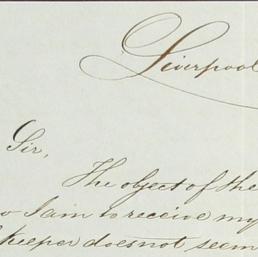 Liverpool
Sir,
The object of the
I am to receive my
keeper does not seem